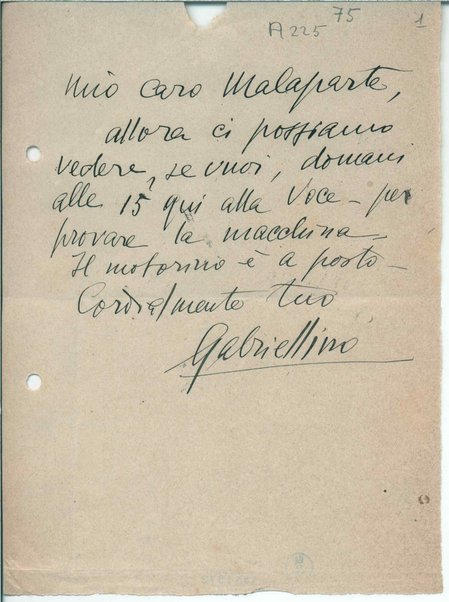 75
A225
1
Mio caro Malaparte,
allora ci possiamo
vedere, se vuoi, domani
alle 15 qui alla Voce - per
provare la macchina -
Il motorino è a posto -
Cordialmente tuo
Gabriellino